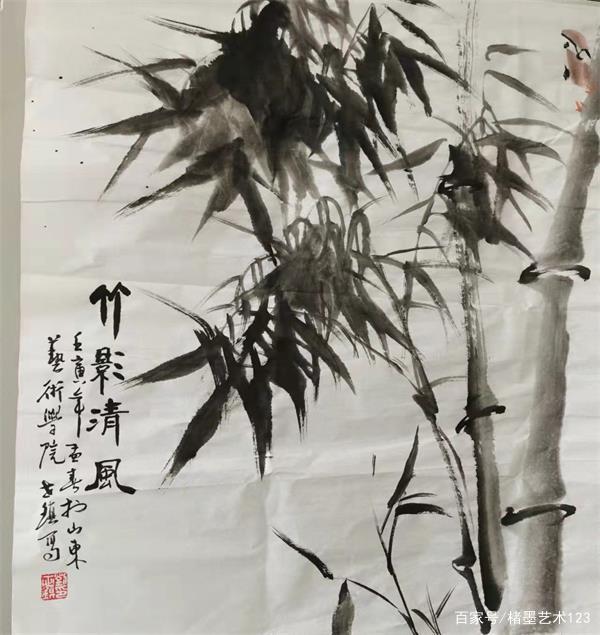 竹影清風
壬寅年孟春於山東
藝術學院
寫
百家号/楮墨艺术123